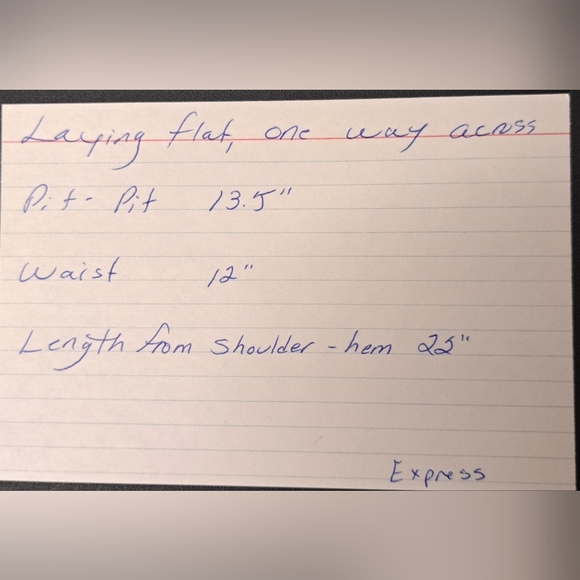 Laying flat, one way across
Pit - Pit 13.5"
Waist 12"
Length from shoulder - hem 25"
Express